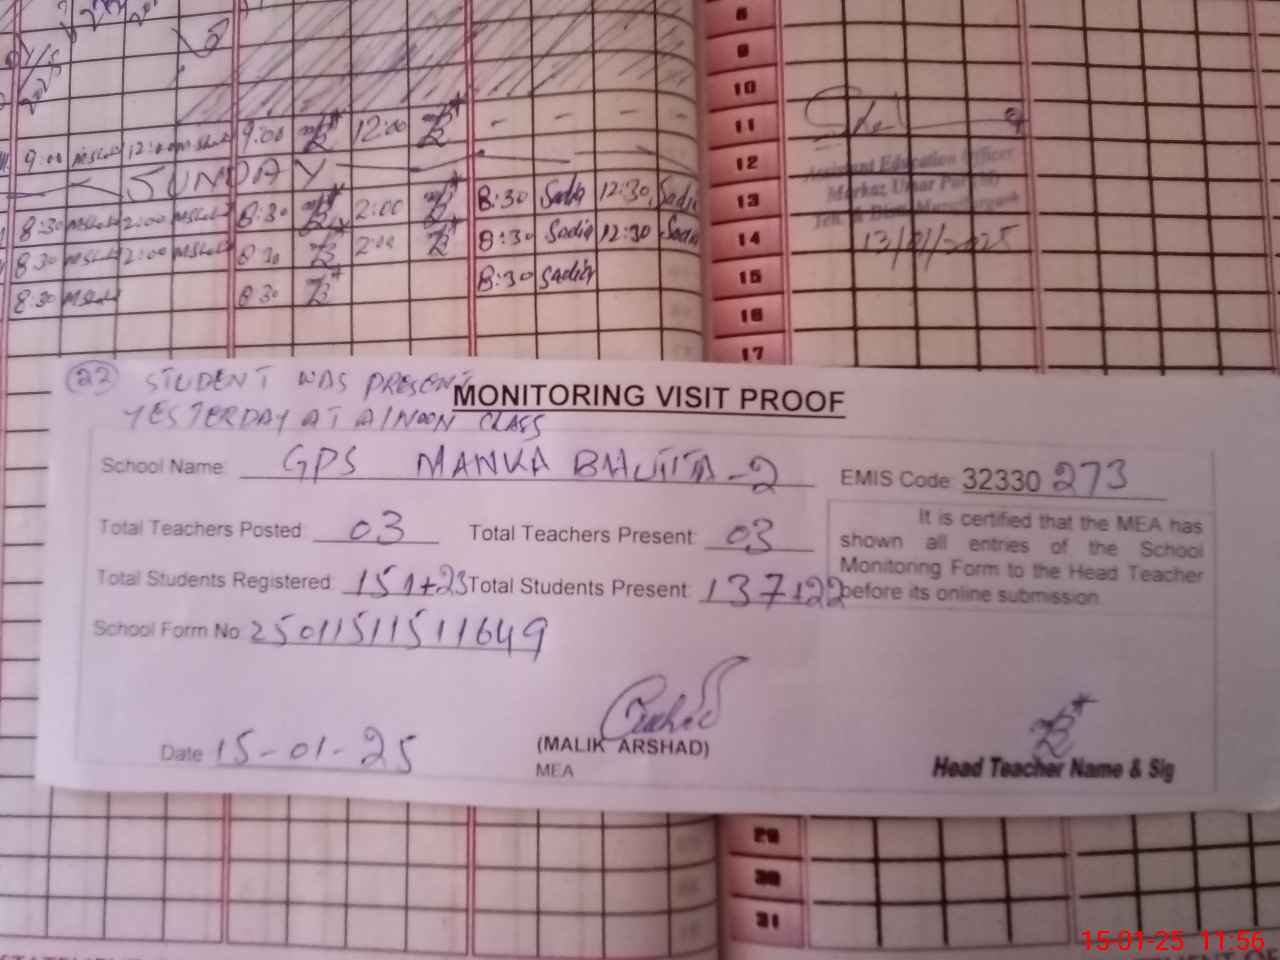 9:00 12:00 9:00 12:00 - - - -
SUNDAY
8:30 2:00 8:30 2:00 8:30 Sadia 12:30 Sadia
8:30 2:00 8:30 2:00 8:30 Sadia 12:30 Sadia
8:30 8:30 8:30 Sadia
8
9
10
11
12
13
14
15
16
17
Assistant Education Officer
Markaz Umar Pur
13/01/2025
22 STUDENT WAS PRESENT
YESTERDAY AT A/NOON CLASS
MONITORING VISIT PROOF
School Name: GPS MANKA BHUTTA-2
EMIS Code: 32330 273
Total Teachers Posted: 03 Total Teachers Present: 03
Total Students Registered: 151+23 Total Students Present: 137+22
School Form No: 25011511511649
It is certified that the MEA has
shown all entries of the School
Monitoring Form to the Head Teacher
before its online submission
Date 15-01-25
(MALIK ARSHAD)
MEA
Head Teacher Name & Sig
29
30
31
15-01-25 11:56